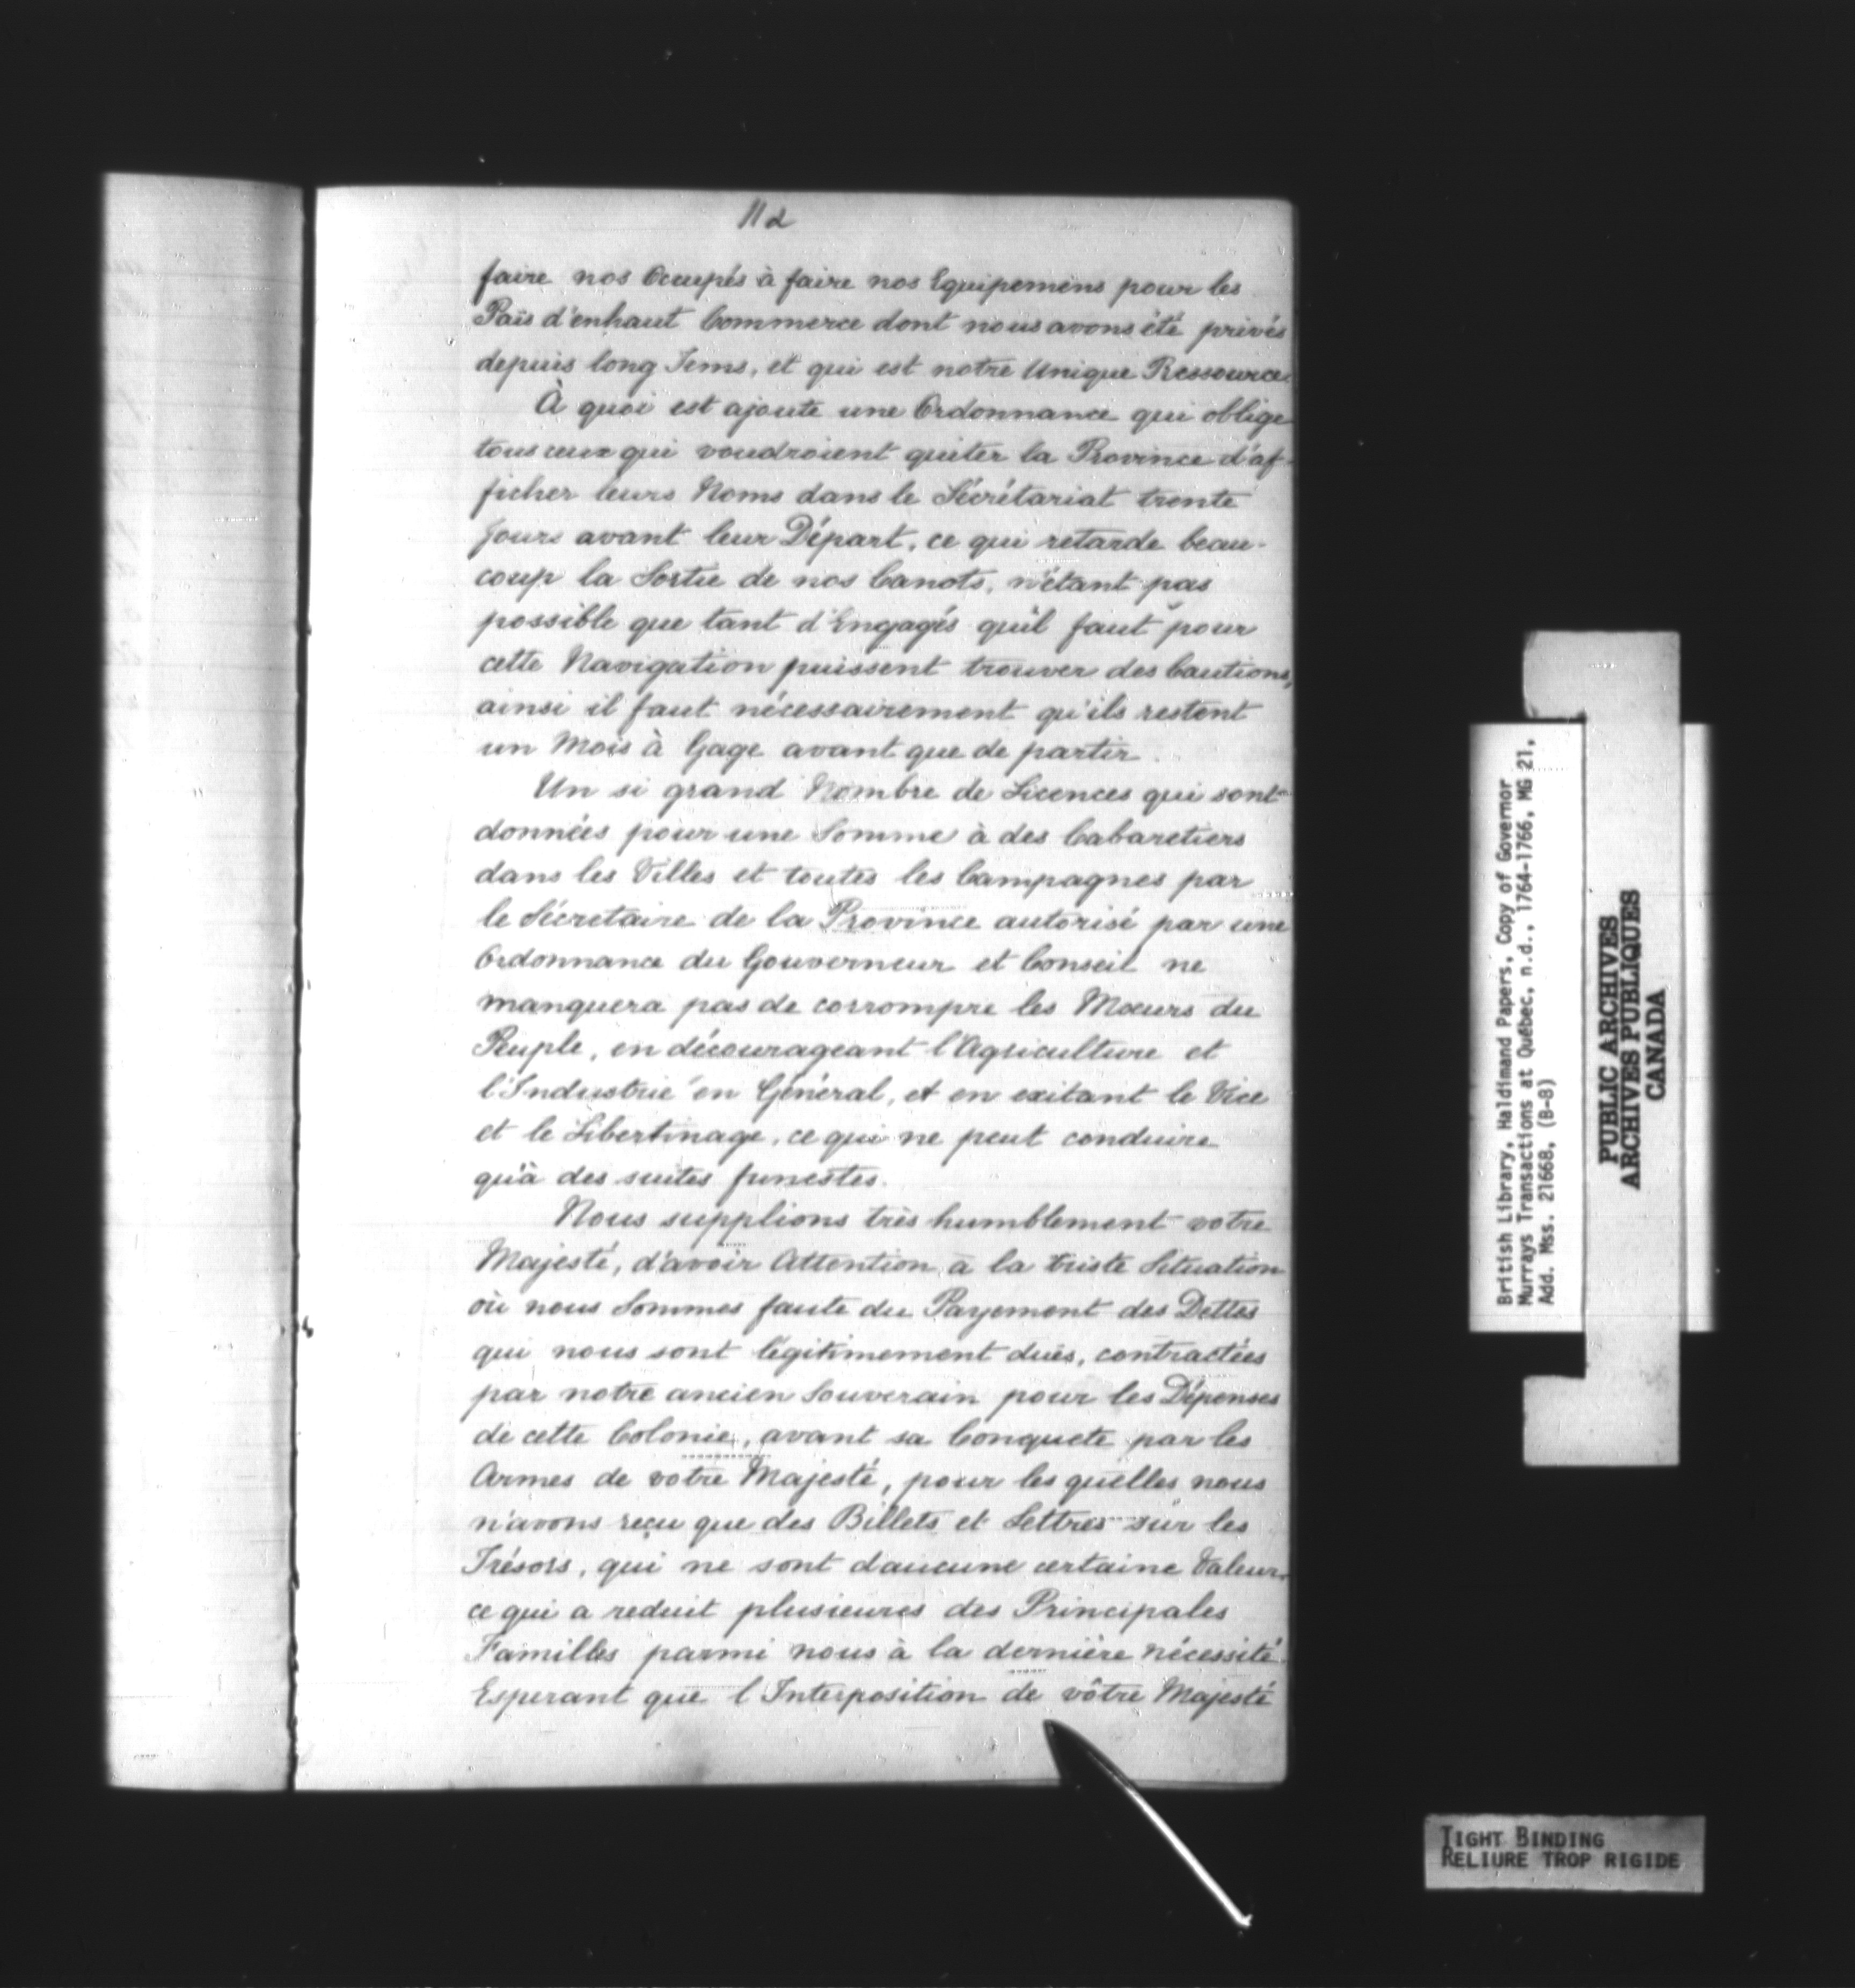 112
faire nos Occupés à faire nos Equipemens pour les
Païs d'enhaut Commerce dont nous avons été privés
depuis long Tems, et qui est notre Unique Ressource.
À quoi est ajouté une Ordonnance qui oblige
tous ceux qui voudroient quiter la Province d'af-
ficher leurs Noms dans le Sécrétariat trente
Jours avant leur Départ, ce qui retarde beau-
coup la Sortie de nos Canots, n'étant pas
possible que tant d'Engagés qu'il faut pour
cette Navigation puissent trouver des Cautions,
ainsi il faut nécessairement qu'ils restent
un Mois à Gage avant que de partir.
Un si grand Nombre de Licences qui sont
données pour une Somme à des Cabaretiers
dans les Villes et toutes les Campagnes par
le Sécretaire de la Province autorisé par une
Ordonnance du Gouverneur et Conseil ne
manquera pas de corrompre les Mœurs du
Peuple, en décourageant l'Agriculture et
l'Industrie en Général, et en exitant le Vice
et le Libertinage, ce qui ne peut conduire
qu'à des suites funestes.
Nous supplions très humblement votre
Majesté, d'avoir Attention à la triste Situation
où nous Sommes faute du Payement des Dettes
qui nous sont légitimement duës, contractées
par notre ancien Souverain pour les Dépenses
de cette Colonie, avant sa Conquete par les
Armes de votre Majesté, pour les quelles nous
n'avons reçu que des Billets et Lettres sur les
Trésors, qui ne sont d'aucune certaine Valeur,
ce qui a reduit plusieures des Principales
Familles parmi nous à la dernière nécessité.
Esperant que l'Interposition de vôtre Majesté
British Library, Haldimand Papers, Copy of Governor
Murrays Transactions at Québec, n.d., 1764-1766, MG 21,
Add. Mss. 21668, (B-8)
PUBLIC ARCHIVES
ARCHIVES PUBLIQUES
CANADA
TIGHT BINDING
RELIURE TROP RIGIDE